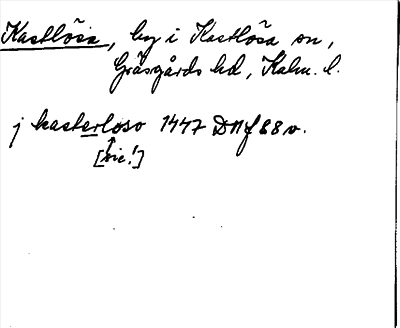 Kastlösa, by i Kastlösa sn,
Gräsgårds hd, Kalm. l.
j kasterloso 1447 D11 f 88 v.
[sic!]